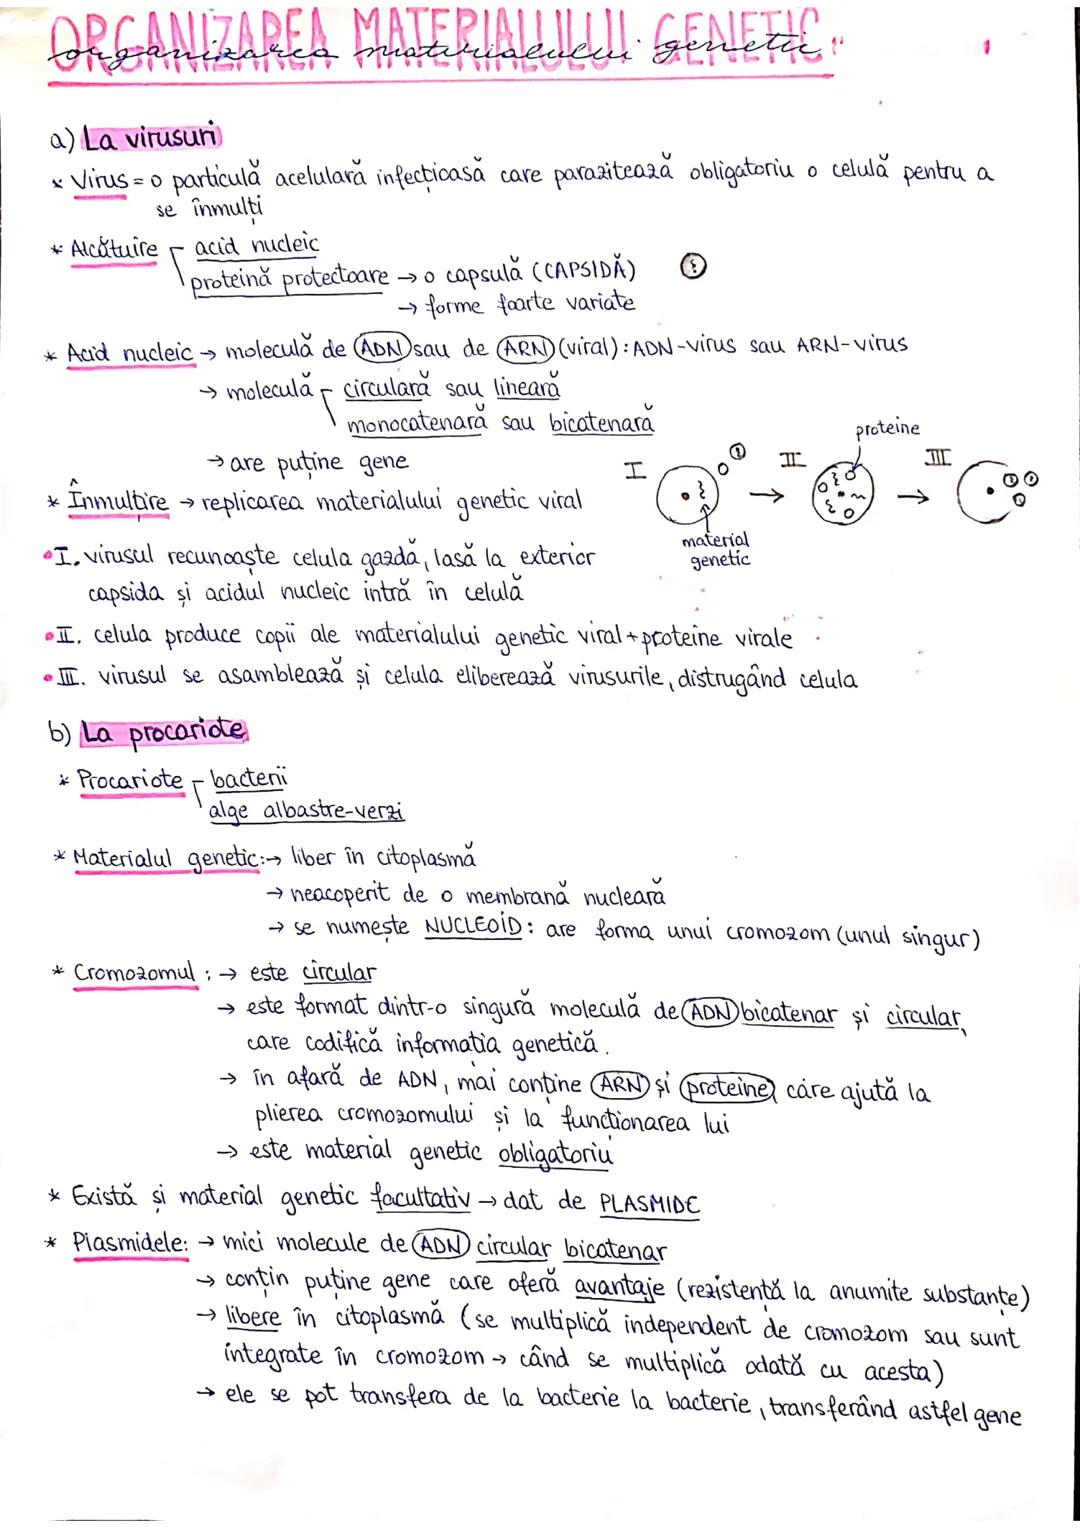 ORGANIZAREA MATERIALULUI GENETIC
organizarea materialului genetic
1
a) La virusuri
* Virus = o particulă acelulară infecțioasă care parazitează obligatoriu o celulă pentru a
se înmulți
* Alcătuire acid nucleic
proteină protectoare → o capsulă (CAPSIDĂ)
→ forme foarte variate
* Acid nucleic → moleculă de ADN sau de ARN (viral): ADN-virus sau ARN-virus
→ moleculă circulară sau lineară
monocatenară sau bicatenară
→ are puține gene
* Înmulțire → replicarea materialului genetic viral
I II III
proteine
material
genetic
• I. virusul recunoaște celula gazdă, lasă la exterior
capsida și acidul nucleic intră în celulă
• II. celula produce copii ale materialului genetic viral + proteine virale
• III. virusul se asamblează și celula eliberează virusurile, distrugând celula
b) La procariote
* Procariote bacterii
alge albastre-verzi
* Materialul genetic: → liber în citoplasmă
→ neacoperit de o membrană nucleară
→ se numește NUCLEOID: are forma unui cromozom (unul singur)
* Cromozomul: → este circular
→ este format dintr-o singură moleculă de ADN bicatenar și circular,
care codifică informatia genetică.
→ în afară de ADN, mai conține ARN și proteine, care ajută la
plierea cromozomului și la funcționarea lui
→ este material genetic obligatoriu
* Există și material genetic facultativ → dat de PLASMIDE
* Plasmidele: → mici molecule de ADN circular bicatenar
→ conțin puține gene care oferă avantaje (rezistență la anumite substanțe)
→ libere în citoplasmă (se multiplică independent de cromozom sau sunt
integrate în cromozom → când se multiplică odată cu acesta)
→ ele se pot transfera de la bacterie la bacterie, transferând astfel gene